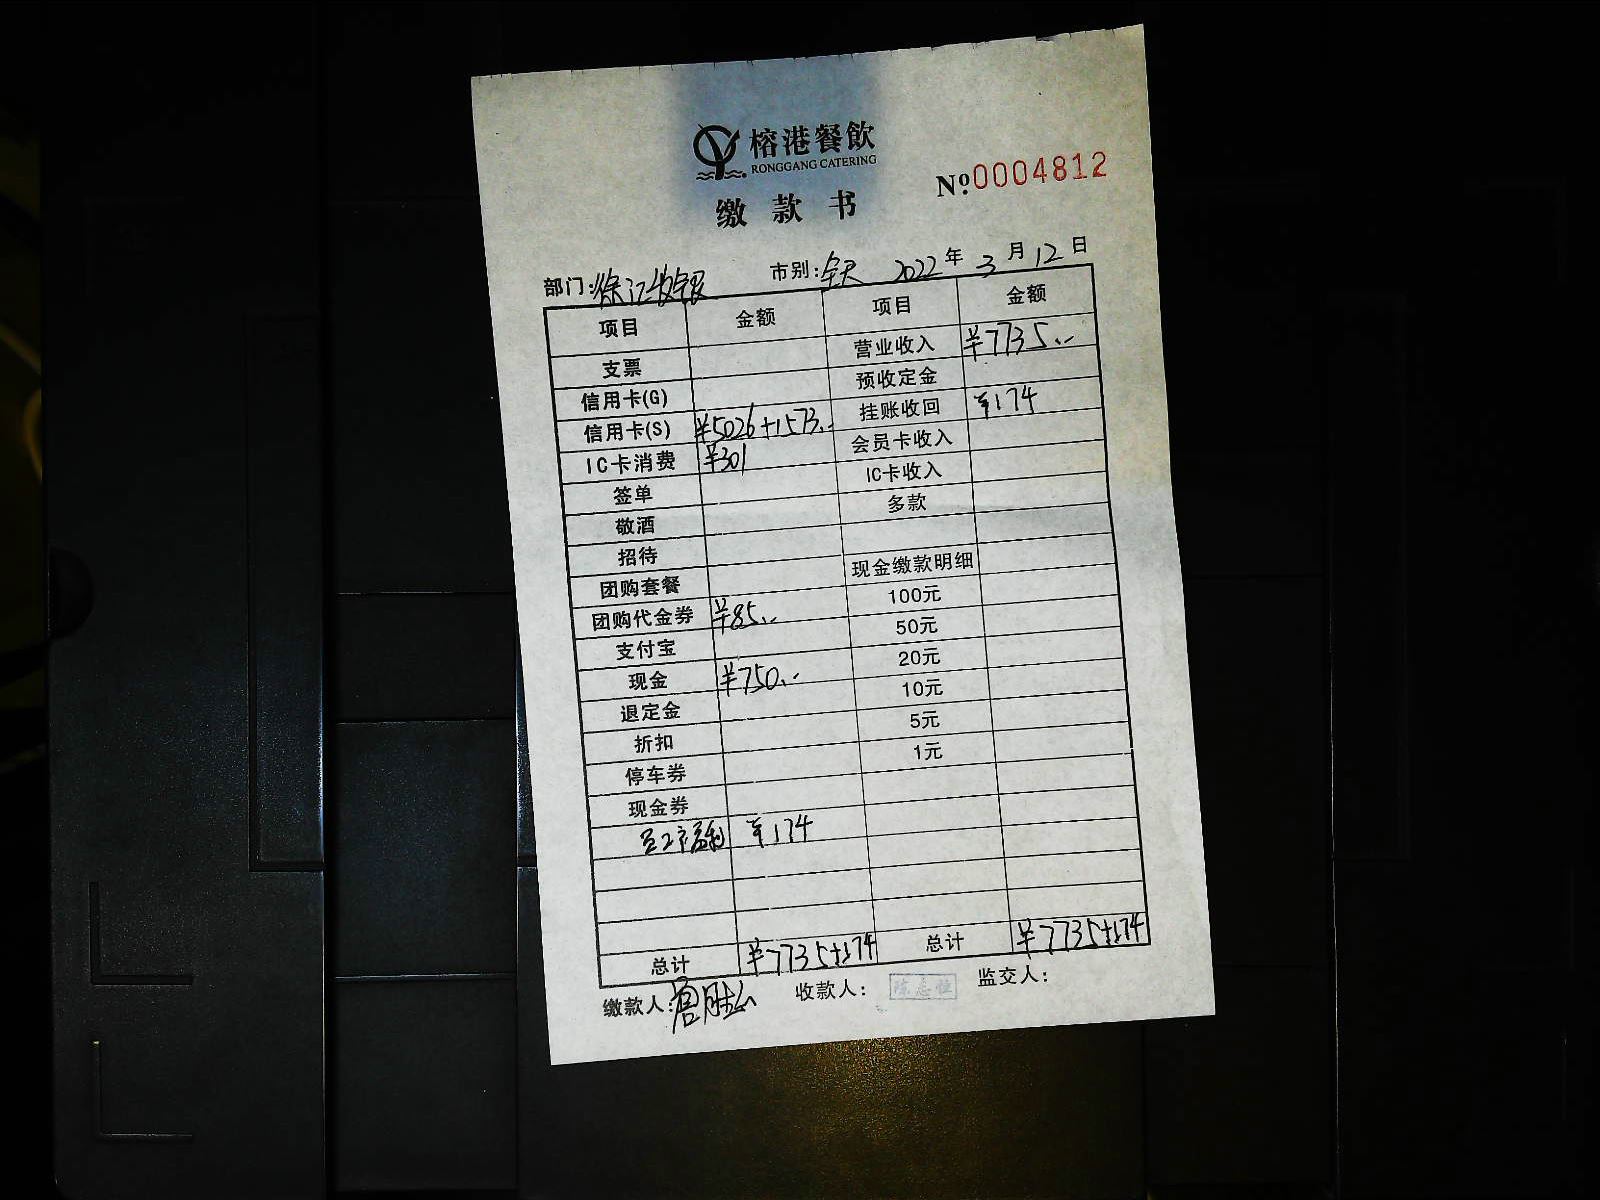 榕港餐飲
RONGGANG CATERING
№0004812
缴款书
部门:徐江收银 市别:全天 2022年3月12日
项目 金额 项目 金额
支票 营业收入 ¥7735.-
信用卡(G) 预收定金
信用卡(S) ¥5026+1573.- 挂账收回 ¥174
IC卡消费 ¥301 会员卡收入
签单 IC卡收入
敬酒 多款
招待
团购套餐 现金缴款明细
团购代金券 ¥85.- 100元
支付宝 50元
现金 ¥750.- 20元
退定金 10元
折扣 5元
停车券 1元
现金券
员工福利 ¥174
总计 ¥7735+174 总计 ¥7735+174
缴款人: 收款人: 监交人: